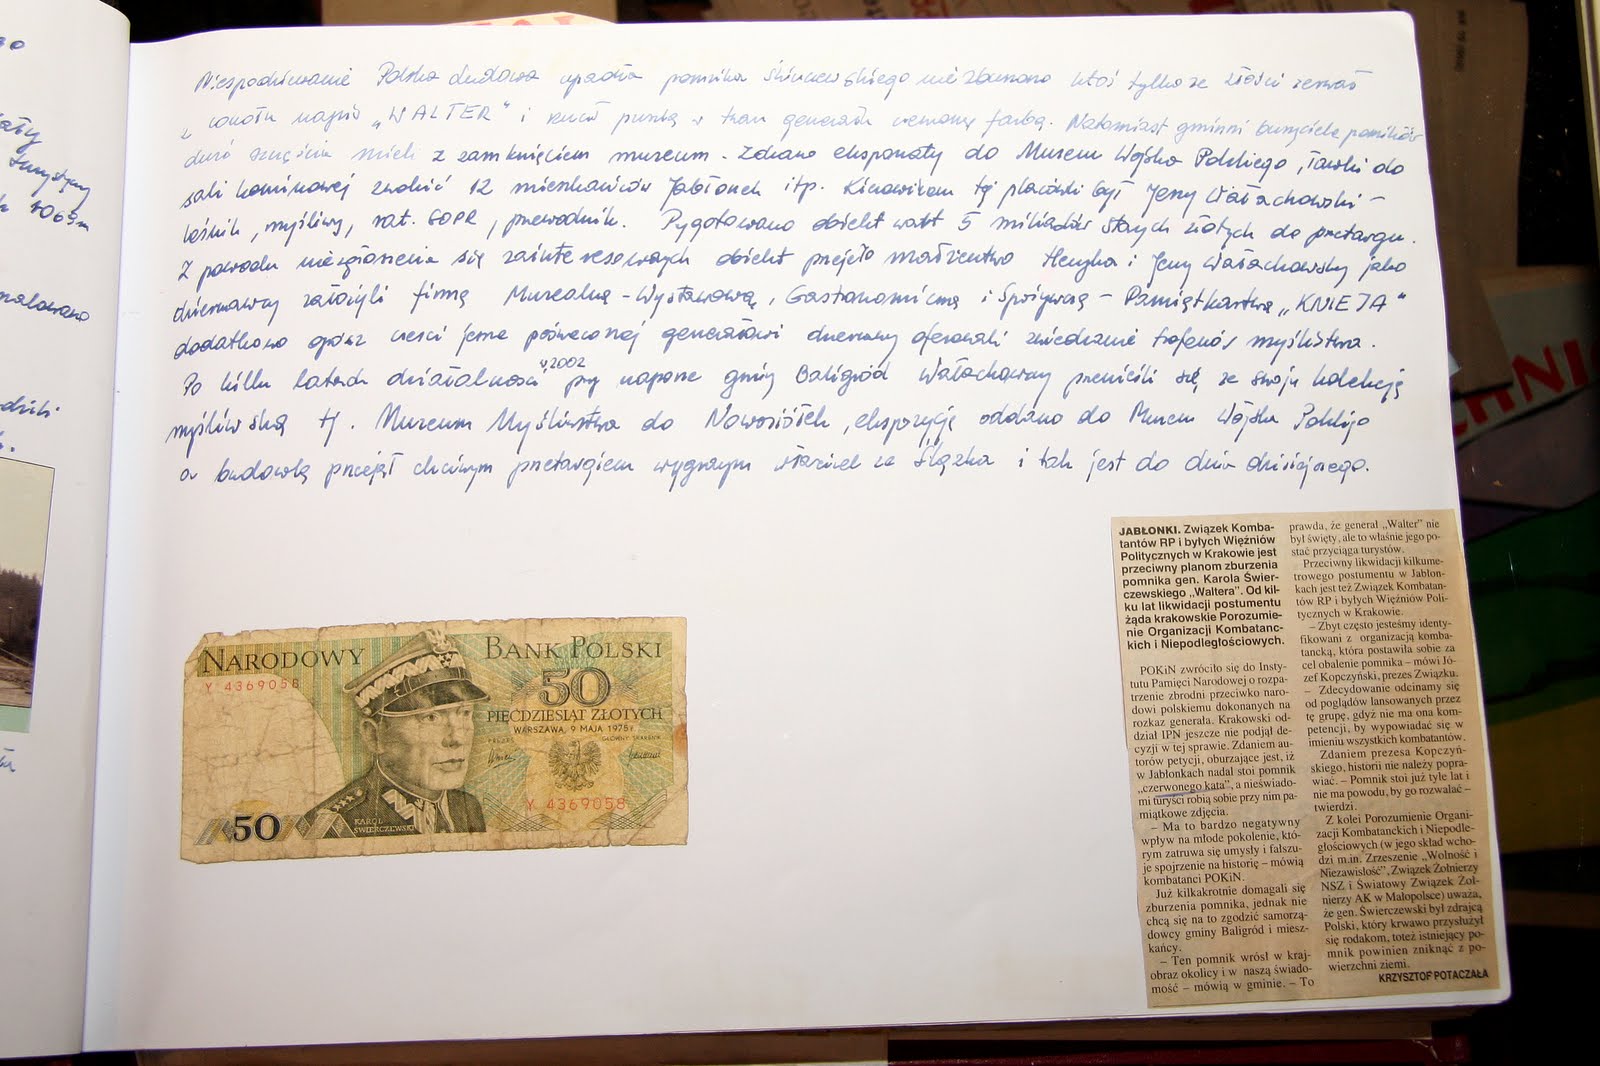 Niespodziewanie Polska Ludowa upadła pomnika Świerczewskiego nie zburzono ktoś tylko ze złości zerwał
z cokołu napis „WALTER" i rzucił puszką w twarz generała czerwoną farbą. Natomiast gminni burzyciele pomników
dużo szczęścia mieli z zamknięciem muzeum. Zdano eksponaty do Muzeum Wojska Polskiego, ławki do
sali kominowej zrobić 12 mieszkańców Jabłonek itp. Kierownikem tej placówki był Jerzy Wałachowski -
leśnik, myśliwy, rat. GOPR, przewodnik. Pygotowano obiekt wart 5 miliardów starych złotych do przetargu.
Z powodu niezgłoszenia się zainteresowanych obiekt przejęło małżeństwo Henryka i Jerzy Wałachowscy jako
dzierżawcy założyli firmę Muzealną - Wystawową, Gastronomiczną i Spożywczą - Pamiątkarską „KNIEJA"
dodatkowo oprócz części poświęconej generałowi dzierżawcy oferowali zwiedzanie trofeów myślistwa.
Po kilku latach działalności w 2002 przy naporze gminy Baligród Wałachowscy przenieśli się ze swoją kolekcją
myśliwską tj. Muzeum Myślistwa do Nowosiółek, ekspozycję oddano do Muzeum Wojska Polskiego
a budowlą przejął przetargiem właściciel ze Śląska i tak jest do dnia dzisiejszego.
NARODOWY BANK POLSKI
Y 4369058
50
PIĘĆDZIESIĄT ZŁOTYCH
WARSZAWA, 9 MAJA 1975 r.
PREZES GŁÓWNY SKARBNIK
Y 4369058
50
KAROL
ŚWIERCZEWSKI
JABŁONKI. Związek Komba-
tantów RP i byłych Więźniów
Politycznych w Krakowie jest
przeciwny planom zburzenia
pomnika gen. Karola Świer-
czewskiego „Waltera". Od kil-
ku lat likwidacji postumentu
żąda krakowskie Porozumie-
nie Organizacji Kombatanc-
kich i Niepodległościowych.
POKiN zwróciło się do Insty-
tutu Pamięci Narodowej o rozpa-
trzenie zbrodni przeciwko naro-
dowi polskiemu dokonanych na
rozkaz generała. Krakowski od-
dział IPN jeszcze nie podjął de-
cyzji w tej sprawie. Zdaniem au-
torów petycji, oburzające jest, iż
w Jabłonkach nadal stoi pomnik
„czerwonego kata", a nieświado-
mi turyści robią sobie przy nim pa-
miątkowe zdjęcia.
– Ma to bardzo negatywny
wpływ na młode pokolenie, któ-
rym zatruwa się umysły i fałszu-
je spojrzenie na historię – mówią
kombatanci POKiN.
Już kilkakrotnie domagali się
zburzenia pomnika, jednak nie
chcą się na to zgodzić samorzą-
dowcy gminy Baligród i miesz-
kańcy.
– Ten pomnik wrósł w kraj-
obraz okolicy i w naszą świado-
mość – mówią w gminie. – To
prawda, że generał „Walter" nie
był święty, ale to właśnie jego po-
stać przyciąga turystów.
Przeciwny likwidacji kilkume-
trowego postumentu w Jabłon-
kach jest też Związek Kombatan-
tów RP i byłych Więźniów Poli-
tycznych w Krakowie.
– Zbyt często jesteśmy identy-
fikowani z organizacją komba-
tancką, która postawiła sobie za
cel obalenie pomnika – mówi Jó-
zef Kopczyński, prezes Związku.
– Zdecydowanie odcinamy się
od poglądów lansowanych przez
tę grupę, gdyż nie ma ona kom-
petencji, by wypowiadać się w
imieniu wszystkich kombatantów.
Zdaniem prezesa Kopczyń-
skiego, historii nie należy popra-
wiać. – Pomnik stoi już tyle lat i
nie ma powodu, by go rozwalać –
twierdzi.
Z kolei Porozumienie Organi-
zacji Kombatanckich i Niepodle-
głościowych (w jego skład wcho-
dzi m.in. Zrzeszenie „Wolność i
Niezawisłość", Związek Żołnierzy
NSZ i Światowy Związek Żoł-
nierzy AK w Małopolsce) uważa,
że gen. Świerczewski był zdrajcą
Polski, który krwawo przysłużył
się rodakom, toteż istniejący po-
mnik powinien zniknąć z po-
wierzchni ziemi.
KRZYSZTOF POTACZAŁA